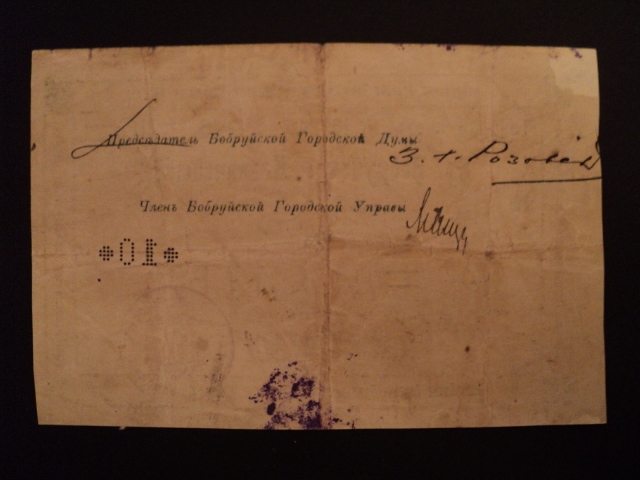 Предсѣдатель Бобруйской Городской Думы
Членъ Бобруйской Городской Управы
*01*